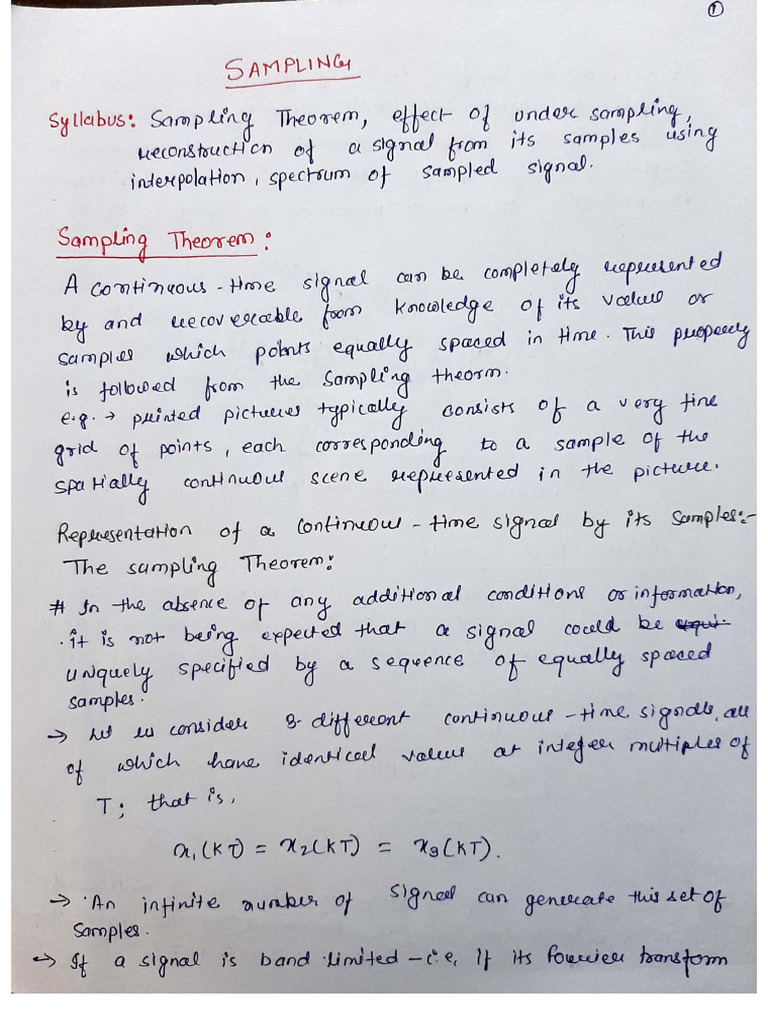 1
SAMPLING
Syllabus: Sampling Theorem, effect of under sampling,
reconstruction of a signal from its samples using
interpolation, spectrum of sampled signal.
Sampling Theorem:
A continuous-time signal can be completely represented
by and recoverable from knowledge of its value or
samples which points equally spaced in time. This property
is followed from the sampling theorm.
e.g. → printed pictures typically consists of a very fine
grid of points, each corresponding to a sample of the
spatially continuous scene represented in the picture.
Representation of a continuous-time signal by its samples:-
The sampling Theorem:
# In the absence of any additional conditions or information,
it is not being expected that a signal could be
uniquely specified by a sequence of equally spaced
samples.
→ Let us consider 3-different continuous-time signals, all
of which have identical values at integer multiples of
T; that is,
x1(KT) = x2(KT) = x3(KT).
→ An infinite number of signal can generate this set of
samples.
→ If a signal is band limited - i.e, if its fourier transform